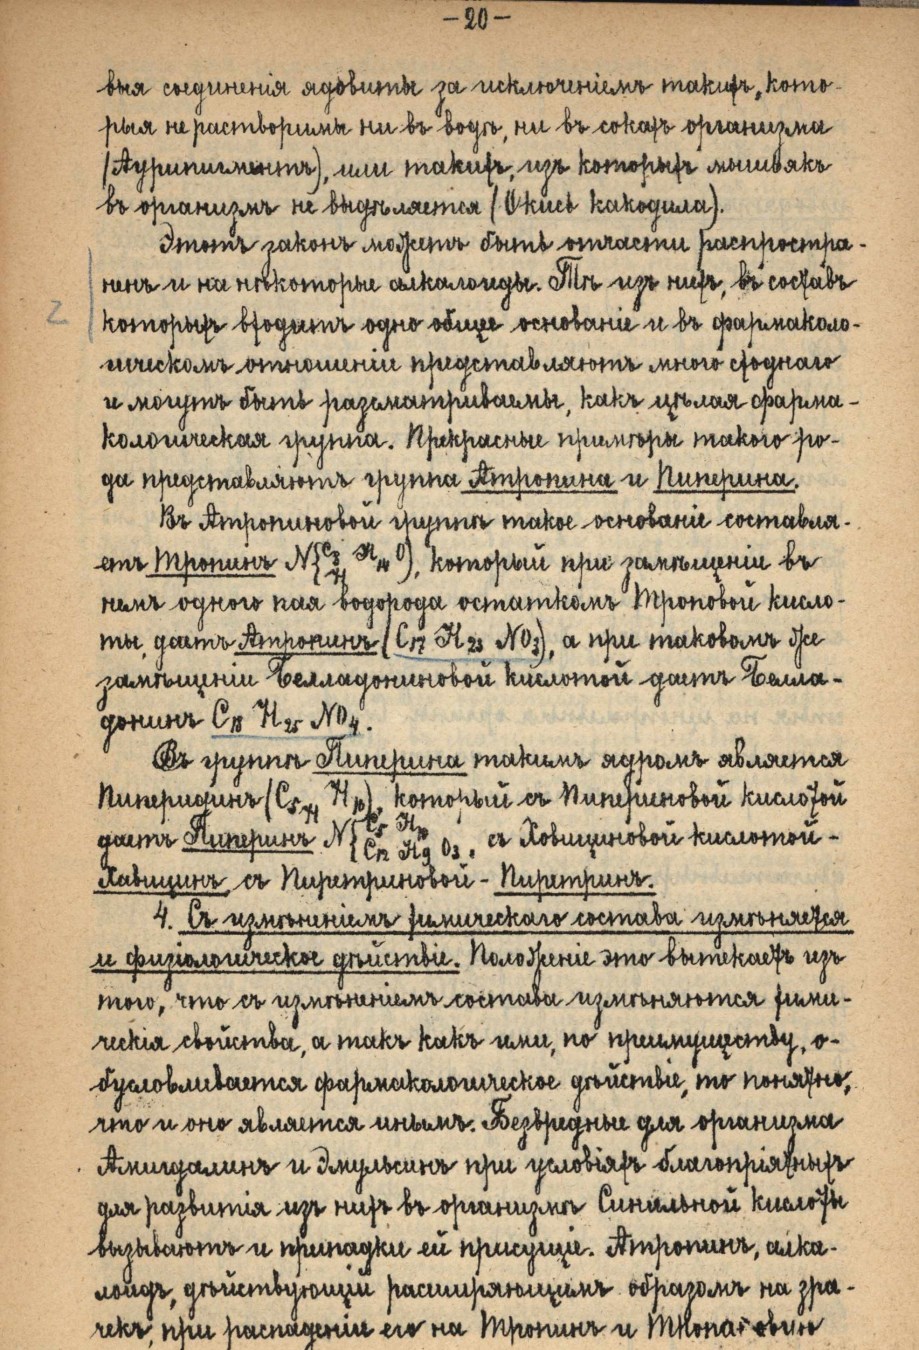 -20-
выя соединенія ядовиты за исключеніемъ такихъ, кото-
рыя не растворимы ни въ водѣ, ни въ сокахъ организма
(Аурипигментъ), или такихъ, изъ которыхъ мышьякъ
въ организмъ не выдѣляется (Окись какодила).
Этотъ законъ можетъ быть отчасти распростра-
ненъ и на нѣкоторые алкалоиды. Тѣ изъ нихъ, въ составъ
2
которыхъ входитъ одно общее основаніе и въ фармаколо-
гическомъ отношеніи представляютъ много сходнаго
и могутъ быть разсматриваемы, какъ цѣлая фарма-
кологическая группа. Прекрасные примѣры такого ро-
да представляютъ группа Атропина и Пиперина.
Въ Атропиновой группѣ такое основаніе составля-
етъ Тропинъ N{C8 H14 O H), который при замѣщеніи въ
немъ одного пая водорода остаткомъ Троповой кисло-
ты, даетъ Атропинъ (C17 H23 NO3), а при таковомъ же
замѣщеніи Белладониновой кислотой даетъ Белла-
донинъ C18 H25 NO4.
Въ группѣ Пиперина такимъ ядромъ является
Пиперидинъ (C5 H H10), который съ Пипериновой кислотой
даетъ Пиперинъ N{C5 H10 C12 H9 O3, съ Хавициновой кислотой -
Хавицинъ, съ Пиретриновой - Пиретринъ.
4. Съ измѣненіемъ химическаго состава измѣняется
и физіологическое дѣйствіе. Положеніе это вытекаетъ изъ
того, что съ измѣненіемъ состава измѣняются хими-
ческія свойства, а такъ какъ ими, по преимуществу, о-
бусловливается фармакологическое дѣйствіе, то понятно,
что и оно является инымъ. Безвредные для организма
Амигдалинъ и Эмульсинъ при условіяхъ благопріятныхъ
для развитія изъ нихъ въ организмѣ Синильной кислоты
вызываютъ и припадки ей присущіе. Атропинъ, алка-
лоидъ, дѣйствующій расширяющимъ образомъ на зра-
чекъ, при распаденіи его на Тропинъ и